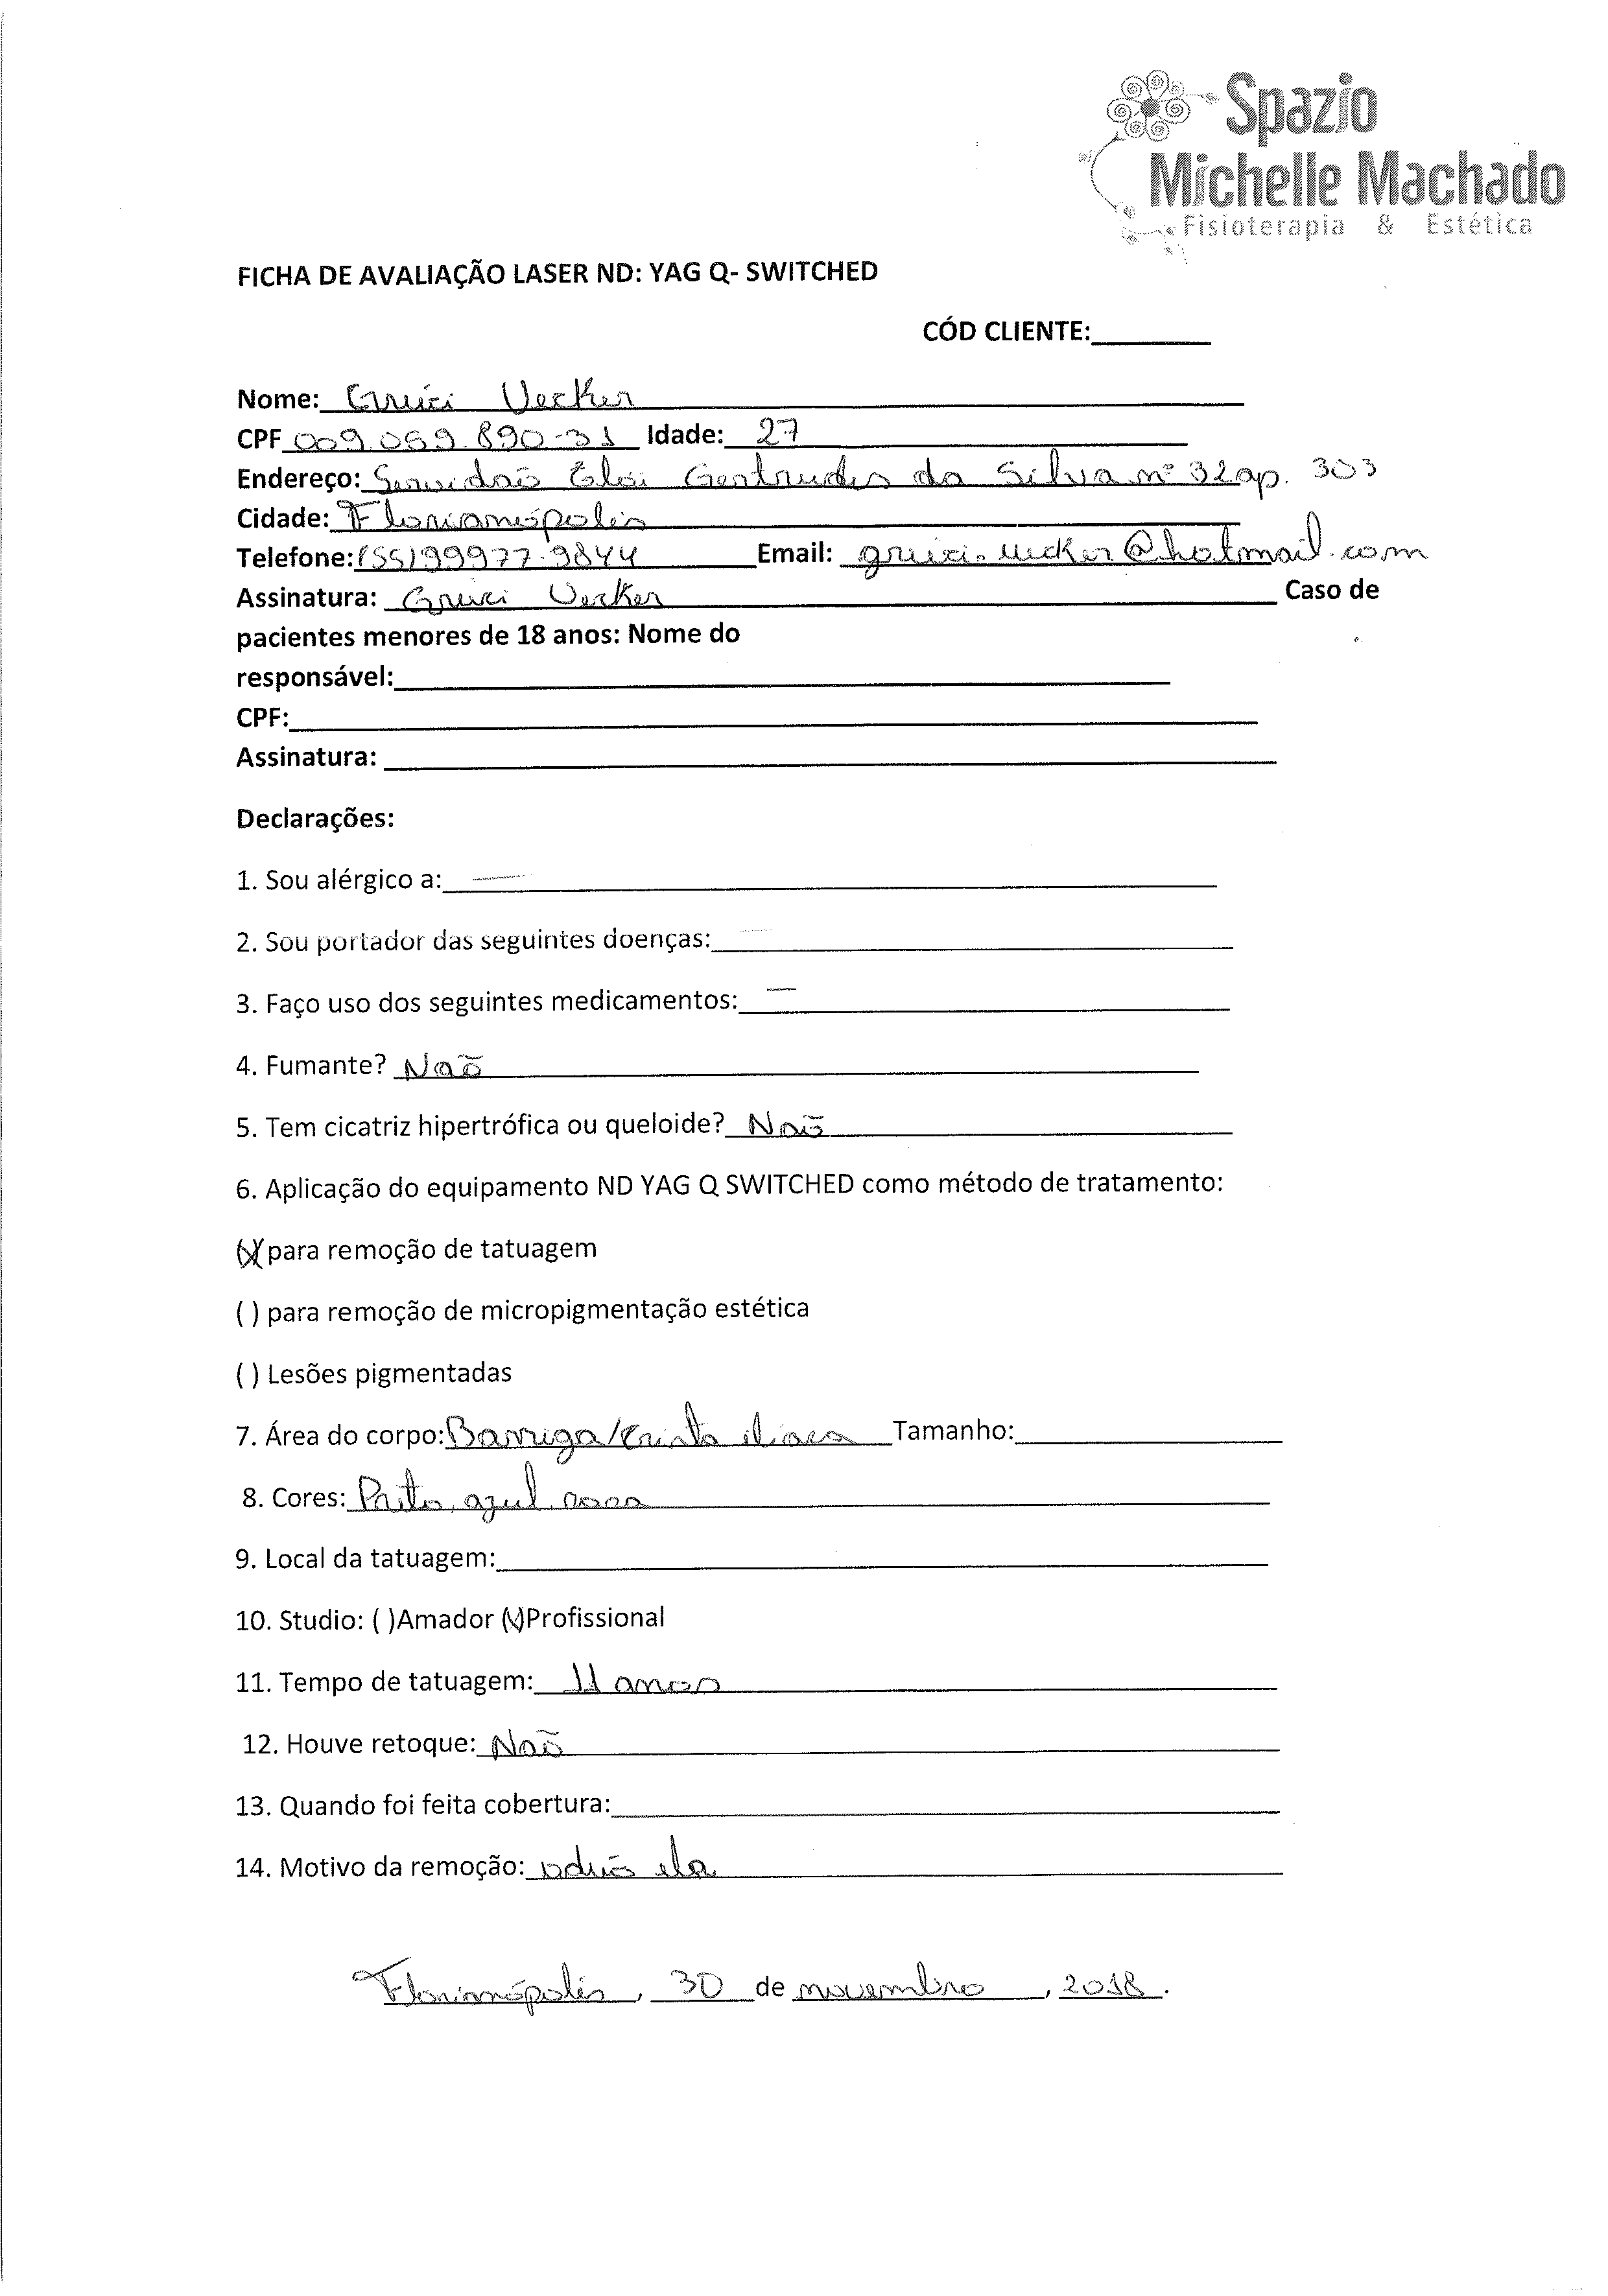 Spazio
Michelle Machado
Fisioterapia & Estética
FICHA DE AVALIAÇÃO LASER ND: YAG Q- SWITCHED
CÓD CLIENTE:
Nome: Greici Uecker
CPF 009.059.890-31 Idade: 27
Endereço: Servidão Elói Gertrudes da Silva nº 32 ap. 303
Cidade: Florianópolis
Telefone: (55) 99977-9844 Email: greici.uecker@hotmail.com
Assinatura: Greici Uecker Caso de
pacientes menores de 18 anos: Nome do
responsável:
CPF:
Assinatura:
Declarações:
1. Sou alérgico a: —
2. Sou portador das seguintes doenças: —
3. Faço uso dos seguintes medicamentos: —
4. Fumante? Não
5. Tem cicatriz hipertrófica ou queloide? Não
6. Aplicação do equipamento ND YAG Q SWITCHED como método de tratamento:
(X) para remoção de tatuagem
( ) para remoção de micropigmentação estética
( ) Lesões pigmentadas
7. Área do corpo: Barriga/Crista ilíaca Tamanho:
8. Cores: Preto, azul, rosa
9. Local da tatuagem:
10. Studio: ( )Amador (x)Profissional
11. Tempo de tatuagem: 11 anos
12. Houve retoque: Não
13. Quando foi feita cobertura:
14. Motivo da remoção: odeio ela
Florianópolis, 30 de novembro, 2018.